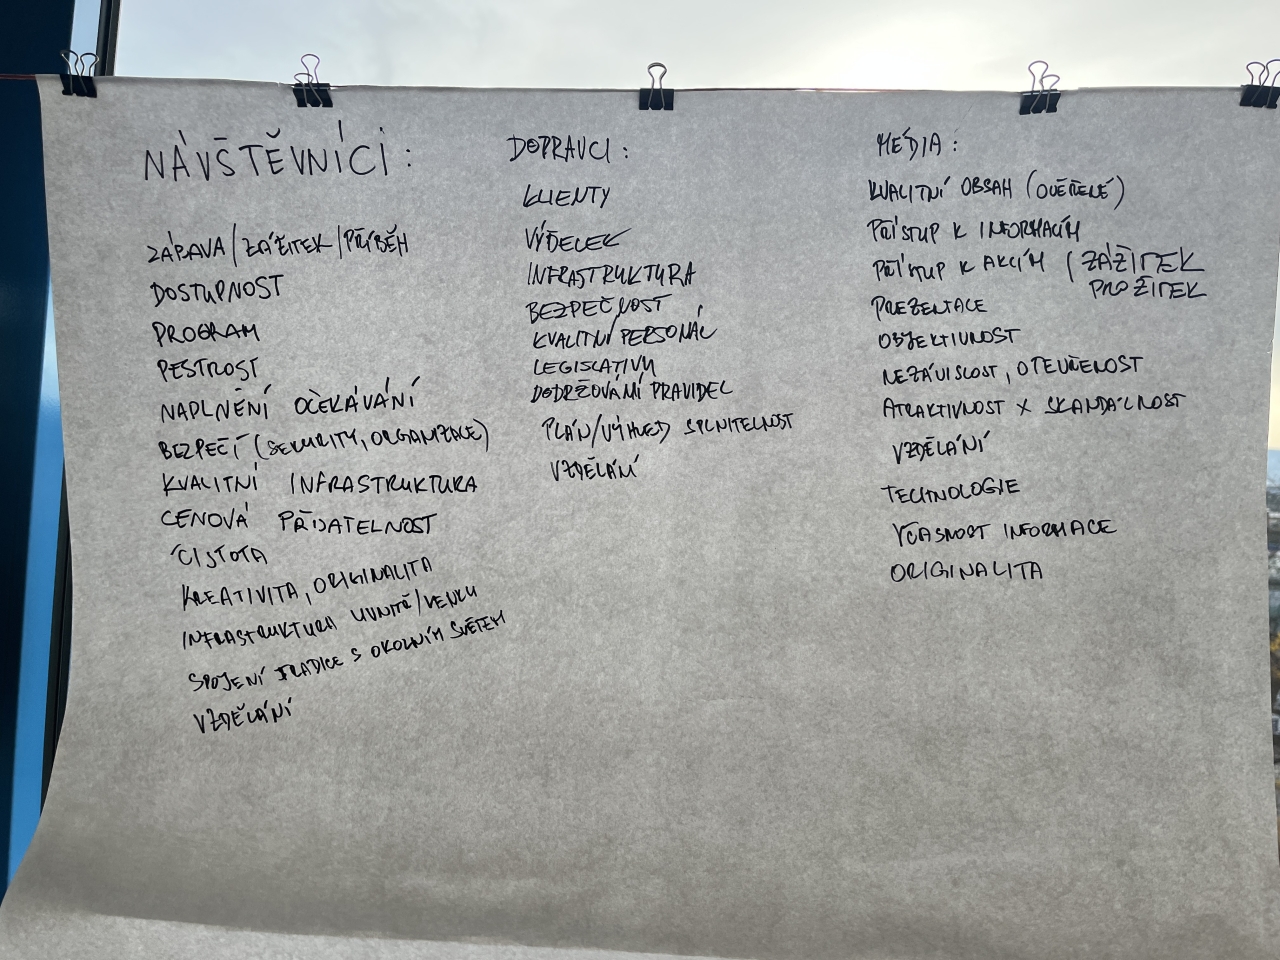 NÁVŠTĚVNÍCI:
ZÁBAVA/ZÁŽITEK/PŘÍBĚH
DOSTUPNOST
PROGRAM
PESTROST
NAPLNĚNÍ OČEKÁVÁNÍ
BEZPEČÍ (SECURITY, ORGANIZACE)
KVALITNÍ INFRASTRUKTURA
CENOVÁ PŘIJATELNOST
ČISTOTA
KREATIVITA, ORIGINALITA
INFRASTRUKTURA UVNITŘ/VENKU
SPOJENÍ TRADICE S OKOLNÍM SVĚTEM
VZDĚLÁNÍ
DOPRAVCI:
KLIENTY
VÝDĚLEK
INFRASTRUKTURA
BEZPEČNOST
KVALITNÍ PERSONÁL
LEGISLATIVU
DODRŽOVÁNÍ PRAVIDEL
PLÁN/VÝHLED SPLNITELNOST
VZDĚLÁNÍ
MÉDIA:
KVALITNÍ OBSAH (OVĚŘENÉ)
PŘÍSTUP K INFORMACÍM
PŘÍSTUP K AKCÍM (ZÁŽITEK
PROŽITEK
PREZENTACE
OBJEKTIVNOST
NEZÁVISLOST, OTEVŘENOST
ATRAKTIVNOST X SKANDÁLNOST
VZDĚLÁNÍ
TECHNOLOGIE
VČASNOST INFORMACE
ORIGINALITA